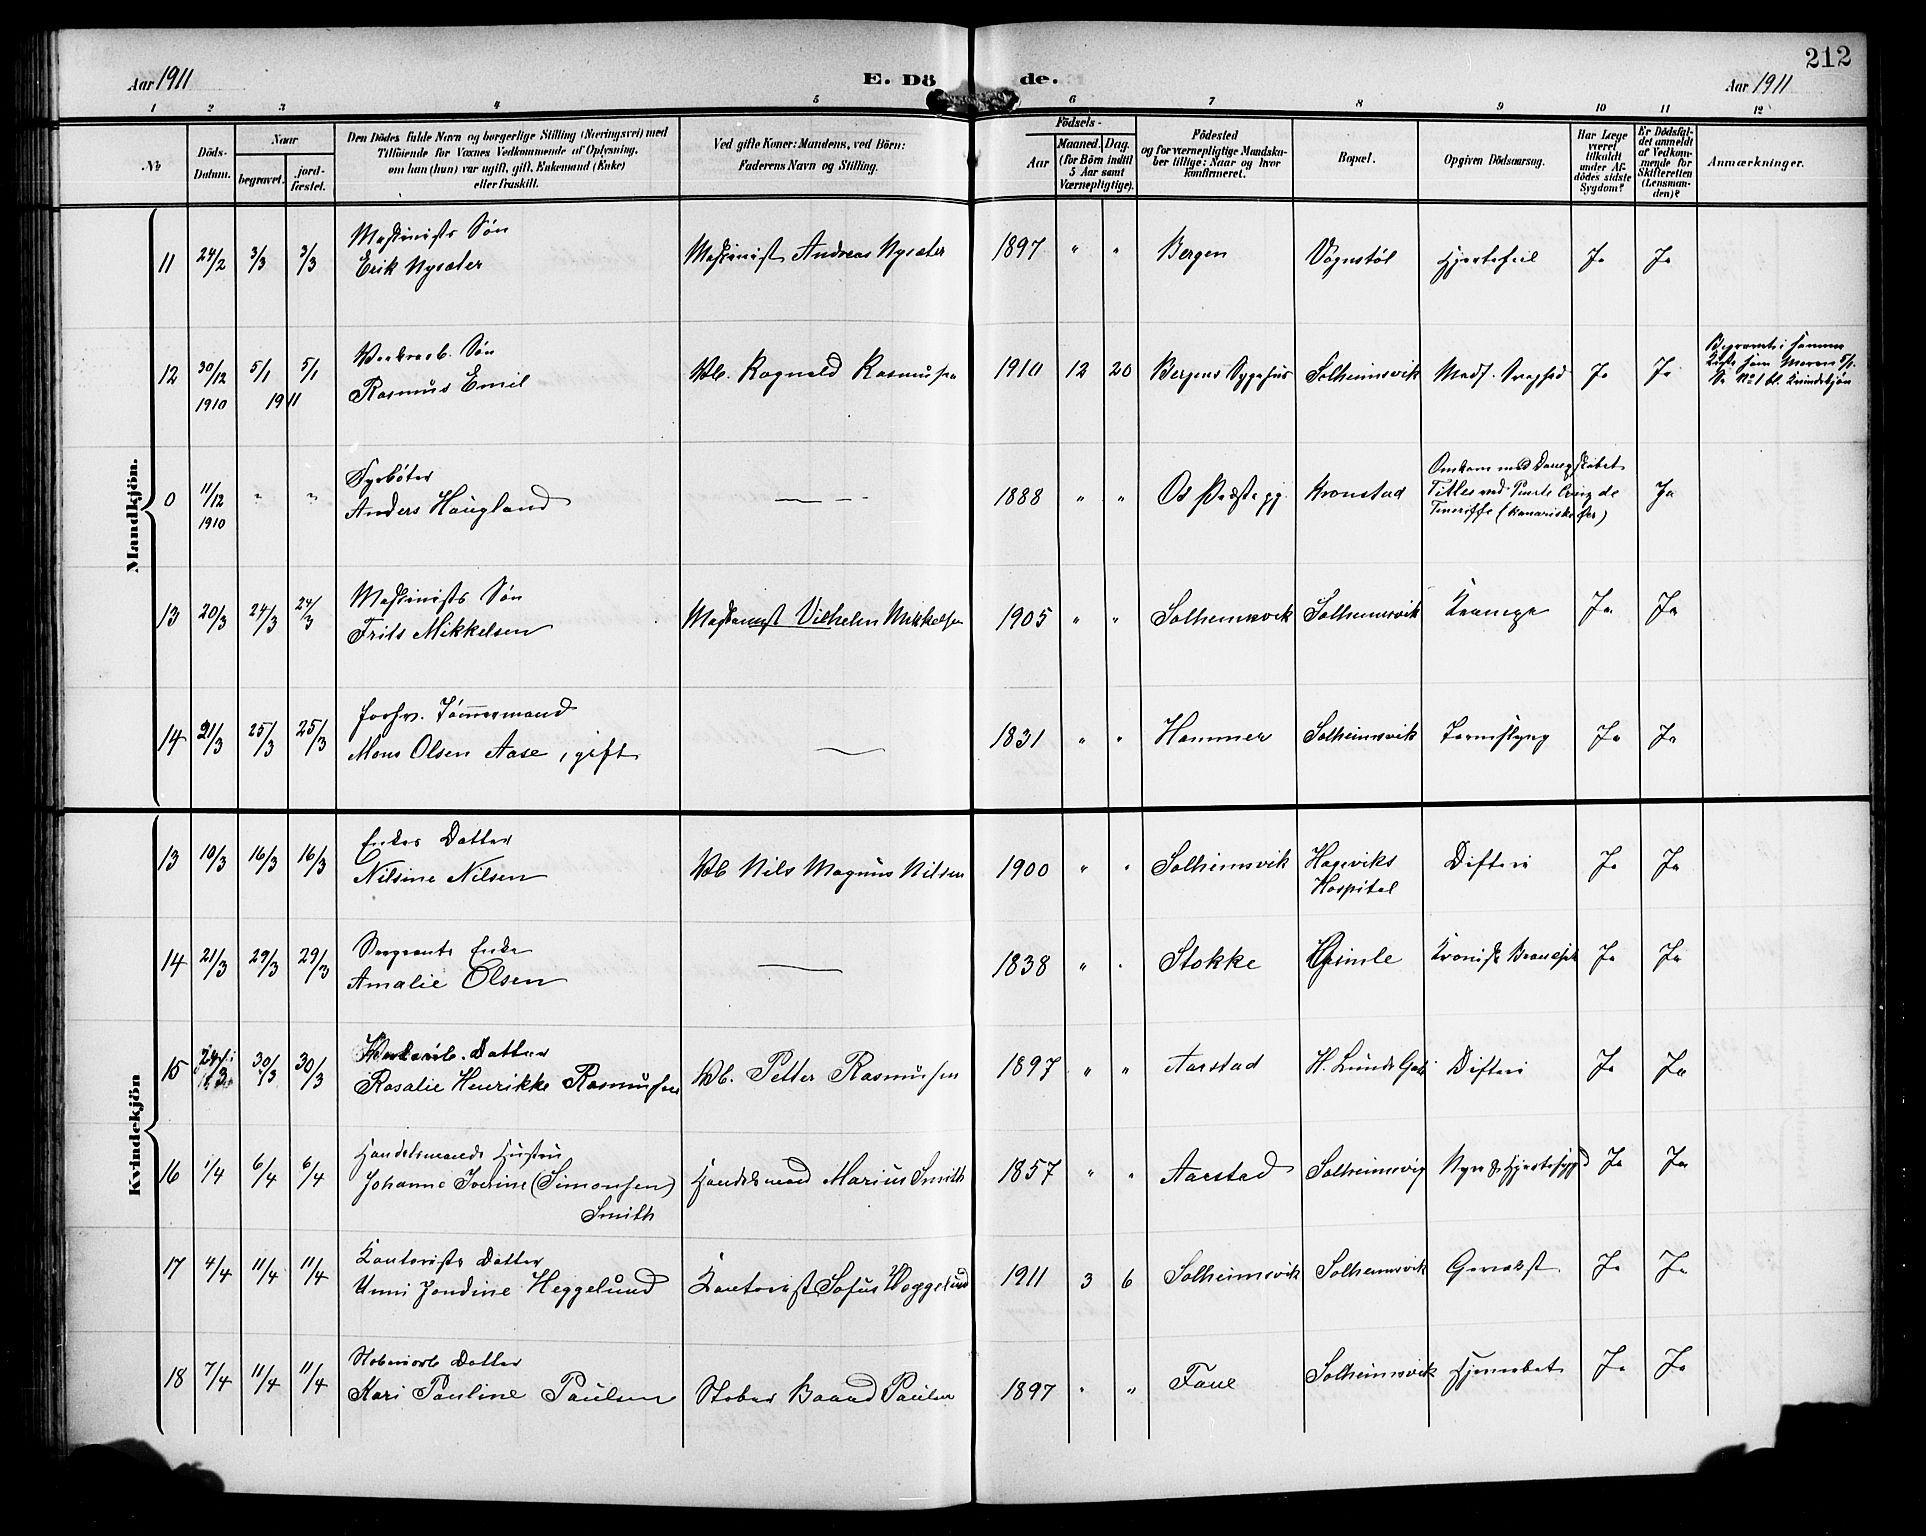 212
Aar 1911
E. Dö de.
Aar 1911
1 2 3 4 5 6 7 8 9 10 11 12
No
Döds-Datum.
Naar
begravet.
jordfæstet.
Den Dödes fulde Navn og borgerlige Stilling (Næringsvei) med
Tilföiende for Voxnes Vedkommende af Oplysning,
om han (hun) var ugift, gift, Enkemand (Enke)
eller fraskilt.
Ved gifte Koner: Mandens, ved Börn:
Faderens Navn og Stilling.
Födsels-
Aar
Maaned. Dag.
(for Börn indtil
5 Aar samt
Værnepligtige).
Födested
og for værnepligtige Mandskaber tillige: Naar og hvor
konfirmeret.
Bopæl.
Opgiven Dödsaarsag.
Har Læge
været
tilkaldt
under Afdödes sidste
Sygdom?
Er Dödsfaldet anmeldt
af Vedkommende for
Skifteretten
(Lensmanden)?
Anmærkninger.
Mandkjön.
11 24/2 3/3 3/3 Maskinists Sön
Erik Nysæter Maskinist Andreas Nysæter 1897 " " Bergen Vognstöl Hjertefeil Ja Ja
12 30/12 1910 5/1 5/1 1911 Sön
Rasmus Emil Wb. Ragnvald Rasmusen 1910 12 20 Bergens Sygehus Solheimsvik Medf. Svaghed Ja Ja Begravet i samme
Kiste som Moren 5/1.
Se No 1 bl. Kvindekjön
0 11/12 1910 " " Fyrböter
Anders Haugland — 1888 " " Os Præstegj. Kronstad Omkom med Dampskibet
Titles ved
Teneriffe (kanariske Öer) Ja
13 20/3 24/3 24/3 Maskinists Sön
Frits Mikkelsen Maskinist Vilhelm Mikkelsen 1905 " " Solheimsvik Solheimsvik Krampe Ja Ja
14 21/3 25/3 25/3 forhv. Tömmermand
Mons Olsen Aase, gift — 1831 " " Hammer Solheimsvik Tarmslyng Ja Ja
Kvindekjön
13 10/3 16/3 16/3 Enkes Datter
Nilsine Nilsen Wb Nils Magnus Nilsen 1900 " " Solheimsvik Hageviks
Hospital Difteri Ja Ja
14 21/3 29/3 29/3 Sergeants Enke
Amalie Olsen — 1838 " " Stokke Gimle Kronisk Ja Ja
15 24/3 30/3 30/3 Datter
Rosalie Henrikke Rasmussen Wb. Petter Rasmussen 1897 " " Aarstad H. Lunds Difteri Ja Ja
16 1/4 6/4 6/4 Handelsmands Hustru
Johanne (Simonsen)
Smith Handelsmand Marius Smith 1857 " " Aarstad Solheimsvig Nyre & Hjertesygd Ja Ja
17 4/4 11/4 11/4 Kontorists Datter
Unni Jondine Heggelund Kontorist Sofus Heggelund 1911 3 6 Solheimsvik Solheimsvik Ja Ja
18 7/4 11/4 11/4 Datter
Kari Pauline Paulsen Stober Baard Paulsen 1897 " " Fane Solheimsvik Ja Ja